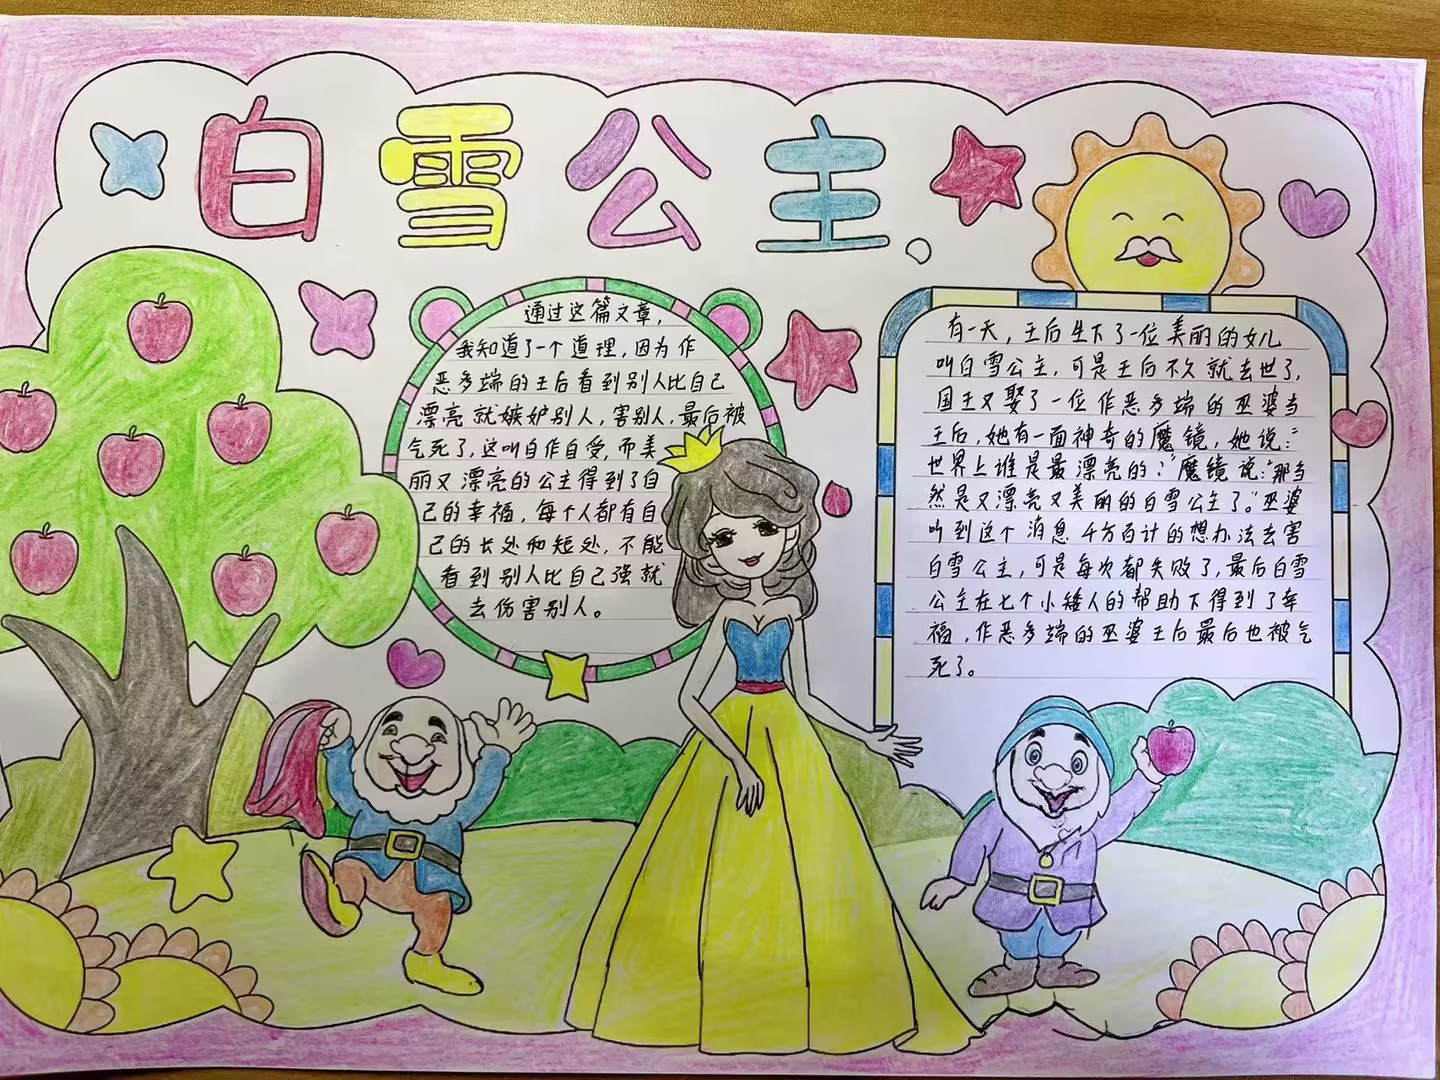 白雪公主
通过这篇文章，
我知道了一个道理，因为作
恶多端的王后看到别人比自己
漂亮就嫉妒别人，害别人，最后被
气死了，这叫自作自受，而美
丽又漂亮的公主得到了自
己的幸福，每个人都有自
己的长处和短处，不能
看到别人比自己强就
去伤害别人。
有一天，王后生下了一位美丽的女儿
叫白雪公主，可是王后不久就去世了，
国王又娶了一位作恶多端的巫婆当
王后，她有一面神奇的魔镜，她说：“
世界上谁是最漂亮的？”魔镜说：“那当
然是又漂亮又美丽的白雪公主了。”巫婆
听到这个消息千方百计的想办法去害
白雪公主，可是每次都失败了，最后白雪
公主在七个小矮人的帮助下得到了幸
福，作恶多端的巫婆王后最后也被气
死了。